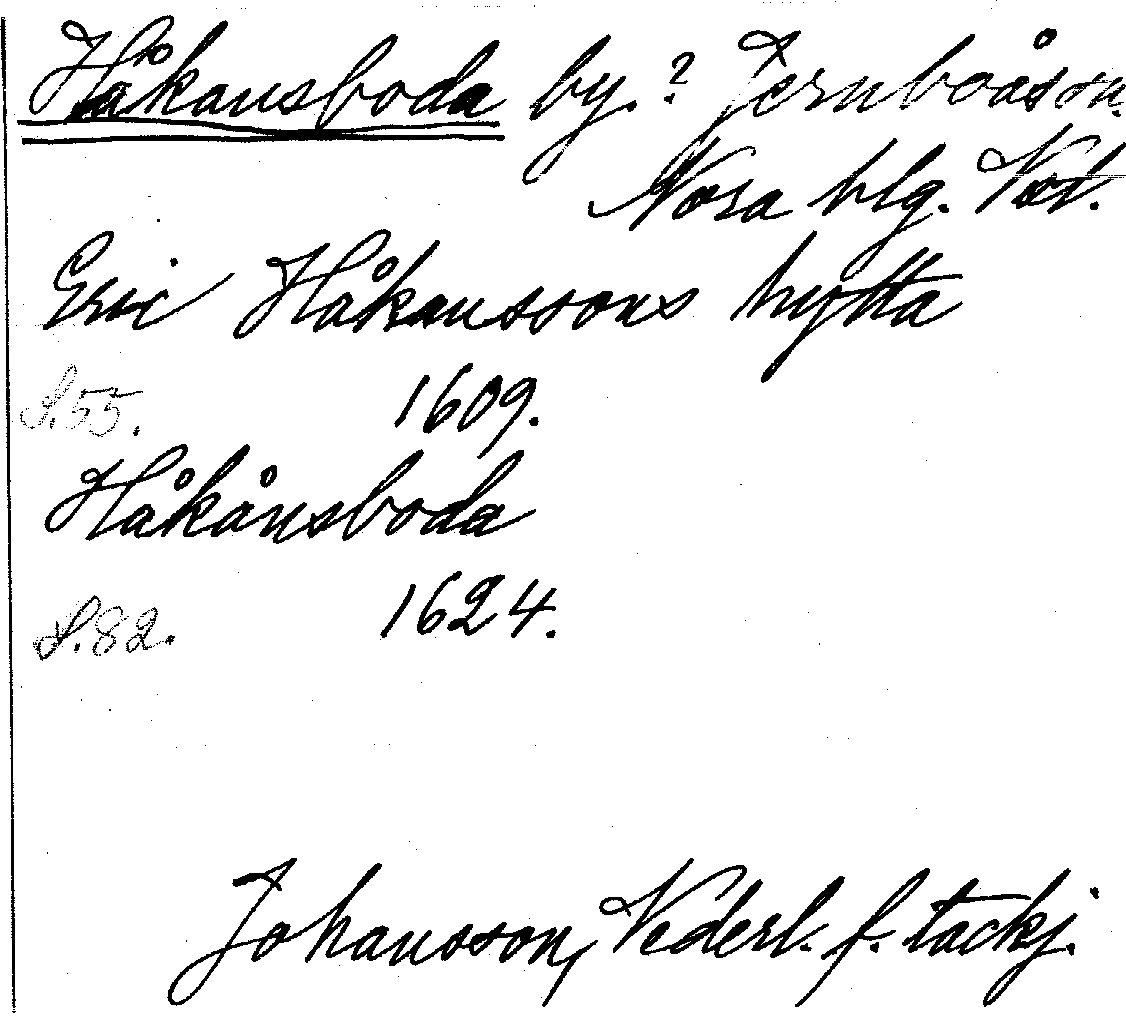 Håkansboda by.? Jernboåson.
Nora blg. Vstl.
Eric Håkanssons hytta
S.55. 1609.
Håkånsboda
S.82. 1624.
Johansson, Nederl. f. tackj.